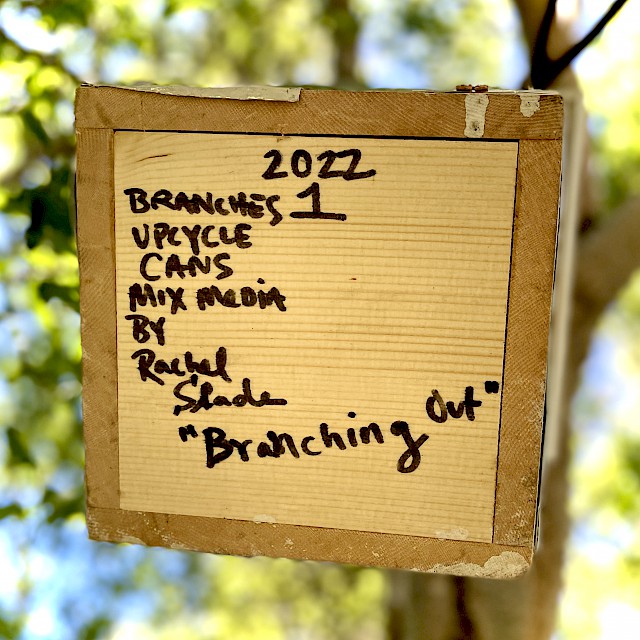 2022
BRANCHES 1
UPCYCLE
CANS
MIX MEDIA
BY
Rachel
Slade
"Branching Out"